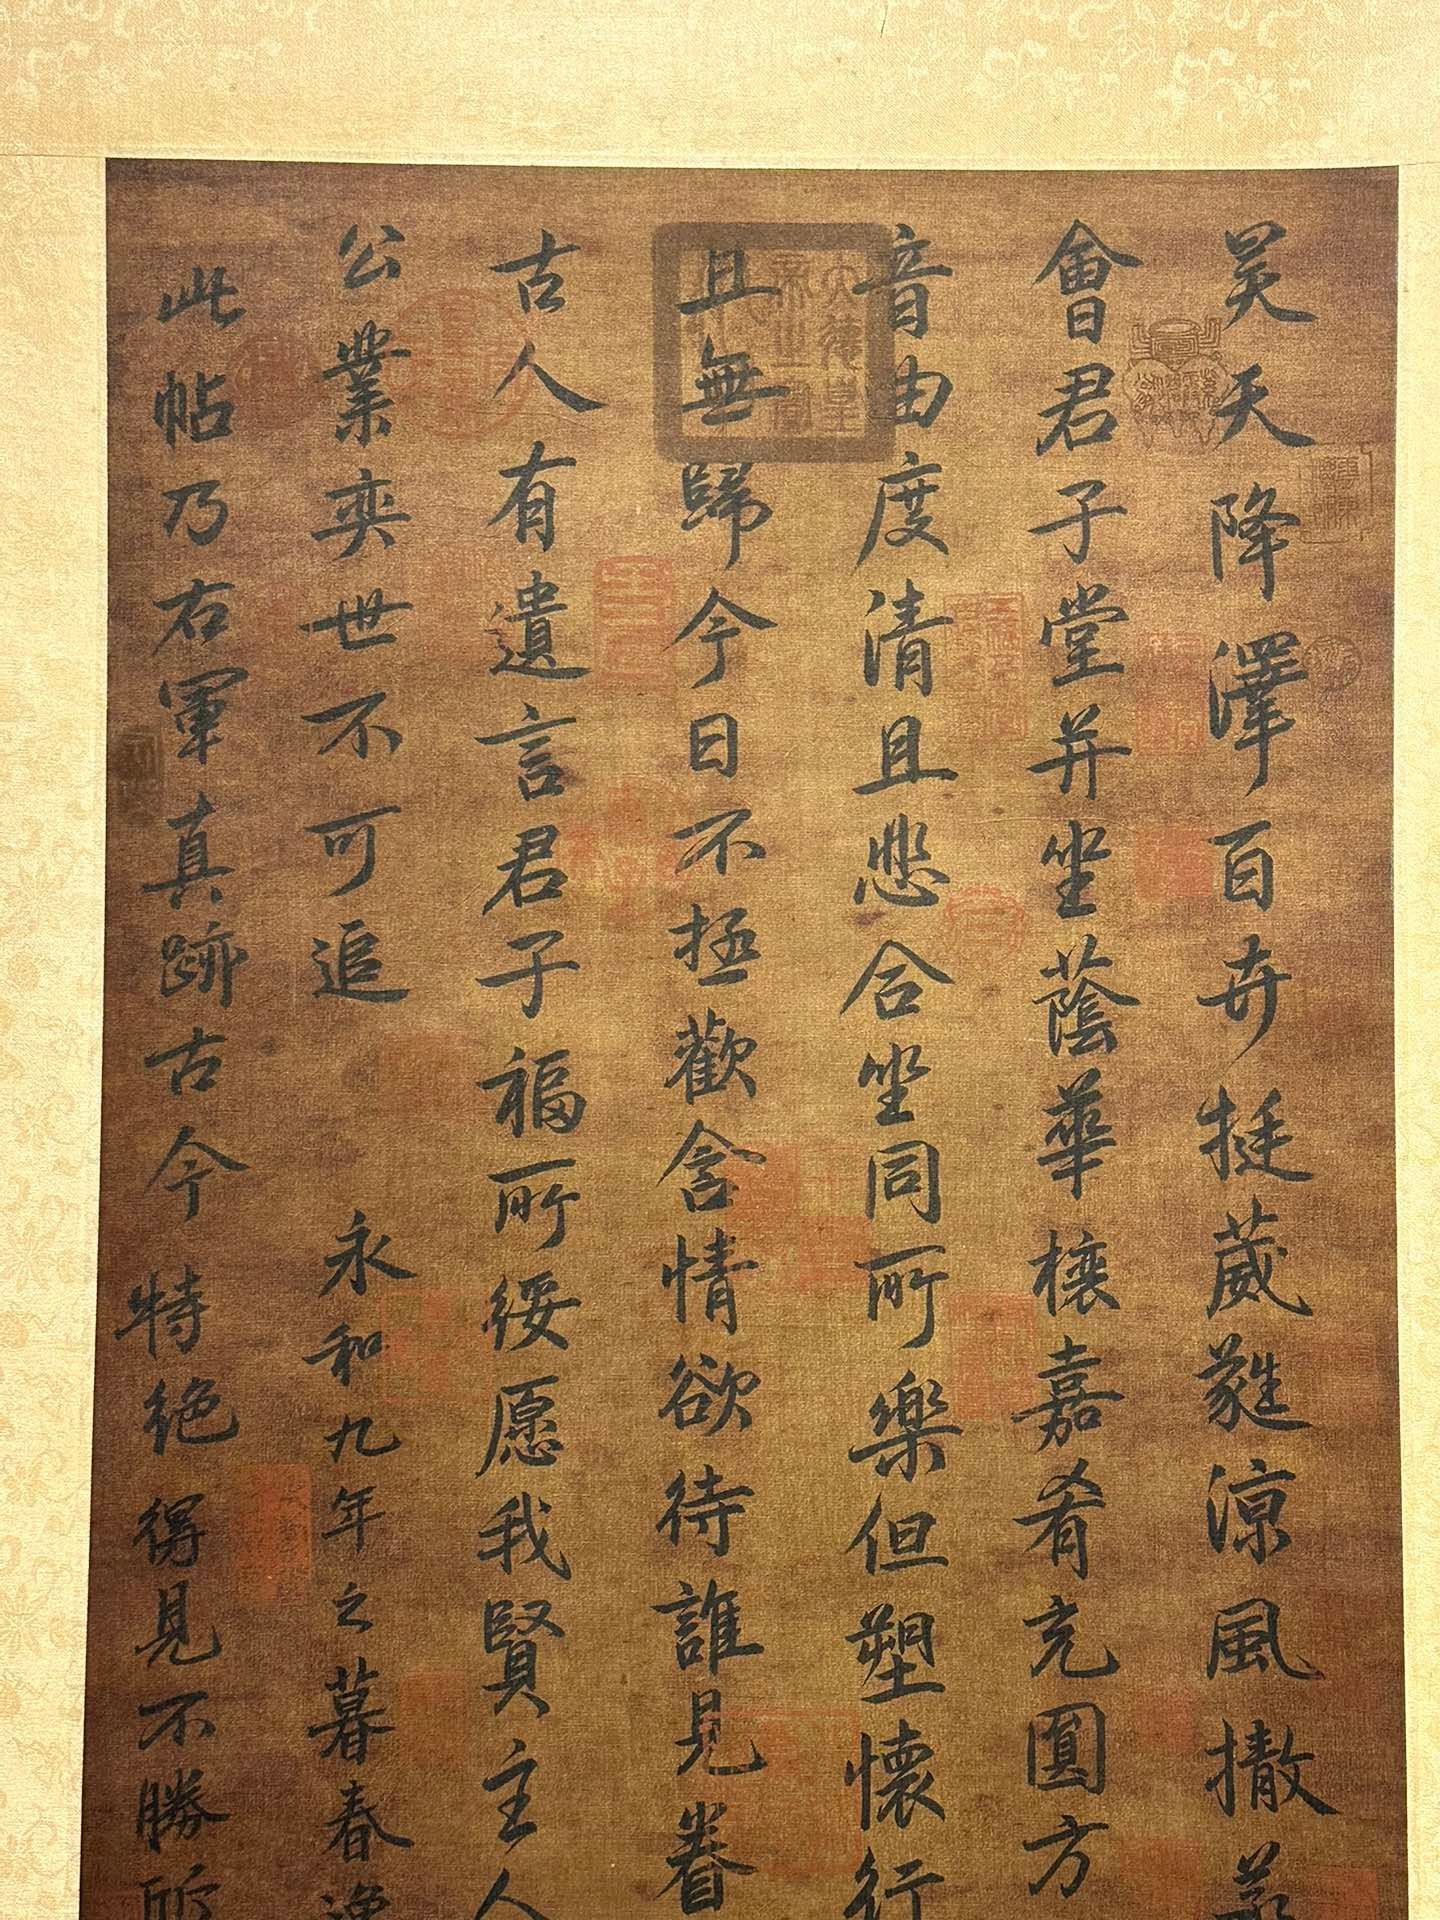 昊天降澤百卉挺葳蕤涼風撤蒸
會君子堂并坐蔭華榱嘉肴充圓方
音由度清且悲合坐同所樂但愬懷行
且無歸今日不極歡含情欲待誰見眷
古人有遺言君子福所綏愿我賢主人
公業奕世不可追 永和九年之暮春
此帖乃右軍真跡古今特絕得見不勝所